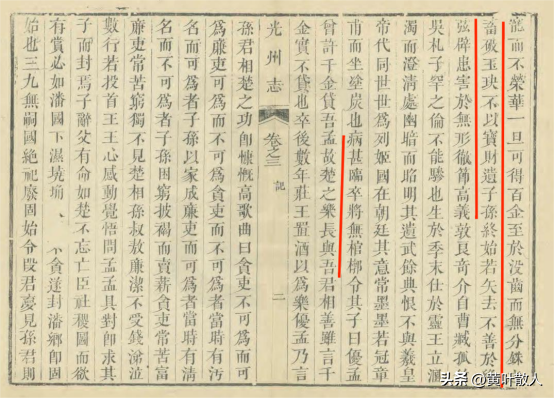 寵而不榮華一旦可得百金至於没齒而無分銖
畜破玉玦不以寶財遺子孫終始若矢去不善於
弦辟患害於無形徹節高義敦良奇介自曹臧孤
吳札子罕之倫不能驂也生於季末仕於靈王立溷
濁而澄清處幽暗而昭明其遺武餘典恨不與羲皇
帝代同世世為列姬國在朝廷其意常墨墨若冠章
甫而坐塗炭也病甚臨卒將無棺槨令其子曰優孟
曾許千金貸吾孟故楚之樂長與吾君相善雖言千
金實不貸也卒後數年莊王置酒以為樂優孟乃言
光州志 卷之三 記 二
孫君相楚之功卽慷慨高歌曲曰貪吏不可為而可
為廉吏可為而不可為貪吏而不可為者當時有污
名而可為者子孫以家成廉吏而可為者當時有清
名而不可為者子孫困窮披褐而賣薪貪吏常苦富
廉吏常苦窮獨不見楚相孫叔敖廉潔不受錢涕泣
數行若投首王王心感動覺悟問孟孟具對卽求其
子而封焉子辭父有命如楚不忘亡臣社稷圖而欲
有賞必如潘國下濕墝埆 不貪遂封潘鄉卽固
始也三九無嗣國絕祀廢固始令段君夢見孫君則
头条 @黄叶散人